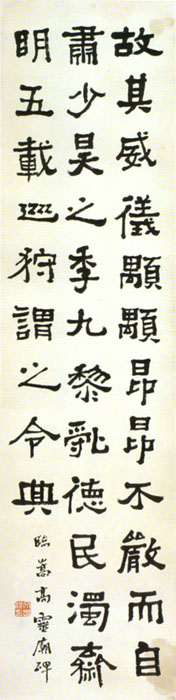 故其威儀顒顒昂昂不嚴而自
肅少昊之季九黎亂德民濁齋
明五載巡狩謂之令典
臨嵩高靈廟碑